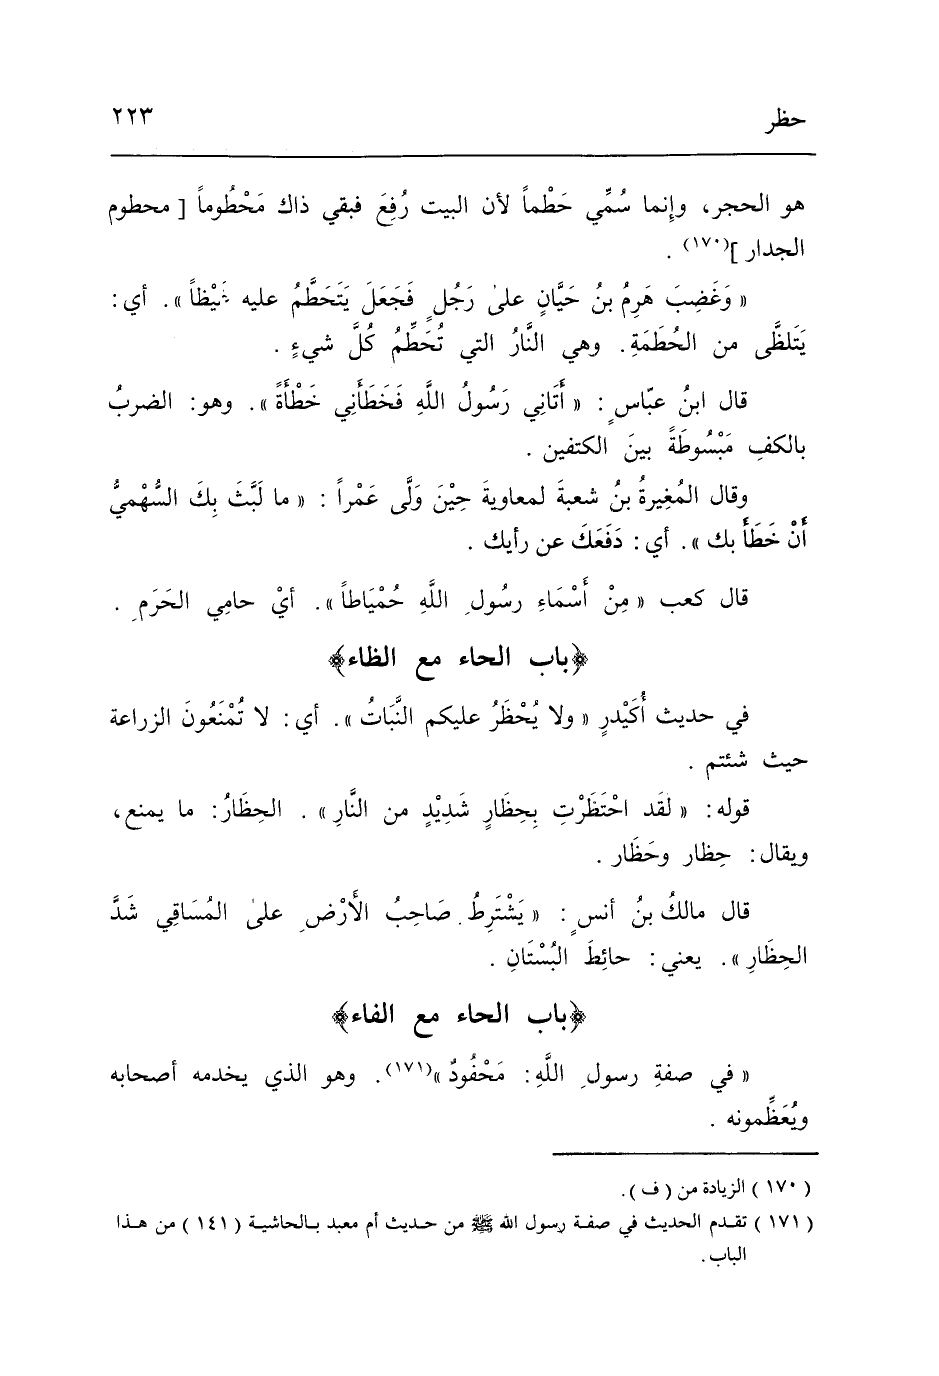 حظر ٢٢٣
هو الحجر، وإنما سُمِّي حَطْماً لأن البيت رُفِعَ فبقي ذاك مَحْطُوماً [ محطوم
الجدار ](١٧٠) .
« وَغَضِبَ هَرِمُ بنُ حَيَّانٍ علىٰ رَجُلٍ فَجَعَلَ يَتَحَطَّمُ عليه غَيْظاً ». أي:
يَتَلظَّى من الحُطَمَةِ. وهي النَّارُ التي تُحَطِّمُ كُلَّ شيءٍ .
قال ابنُ عبّاسٍ : « أَتَانِي رَسُولُ اللَّهِ فَحَطَأَنِي حَطْأَةً ». وهو: الضربُ
بالكفِ مَبْسُوطَةً بينَ الكتفين .
وقال المُغِيرةُ بنُ شعبةَ لمعاويةَ حِيْنَ وَلَّى عَمْراً : « ما لَبَّثَ بِكَ السُّهْميُّ
أَنْ حَطَأَ بك ». أي: دَفَعَكَ عن رأيك .
قال كعب « مِنْ أَسْمَاءِ رسُولِ اللَّهِ حُمْيَاطاً ». أيْ حامِي الحَرَمِ .
﴿باب الحاء مع الظاء﴾
في حديث أُكَيْدرٍ « ولا يُحْظَرُ عليكم النَّبَاتُ ». أي: لا تُمْنَعُونَ الزراعة
حيث شئتم .
قوله: « لقَد احْتَظَرْتِ بِحِظَارٍ شَدِيْدٍ من النَّارِ » . الحِظَارُ: ما يمنع،
ويقال: حِظار وحَظَار .
قال مالكُ بنُ أنسٍ : « يَشْتَرِطُ صَاحِبُ الأَرْضِ علىٰ المُسَاقِي شَدَّ
الحِظَارِ ». يعني: حائِطَ البُسْتَانِ .
﴿باب الحاء مع الفاء﴾
« في صفةِ رسولِ اللَّهِ: مَحْفُودٌ »(١٧١). وهو الذي يخدمه أصحابه
ويُعَظِّمونه .
( ١٧٠ ) الزيادة من ( ف ).
( ١٧١ ) تقدم الحديث في صفة رسول الله ﷺ من حديث أم معبد بالحاشية ( ١٤١ ) من هذا
الباب.